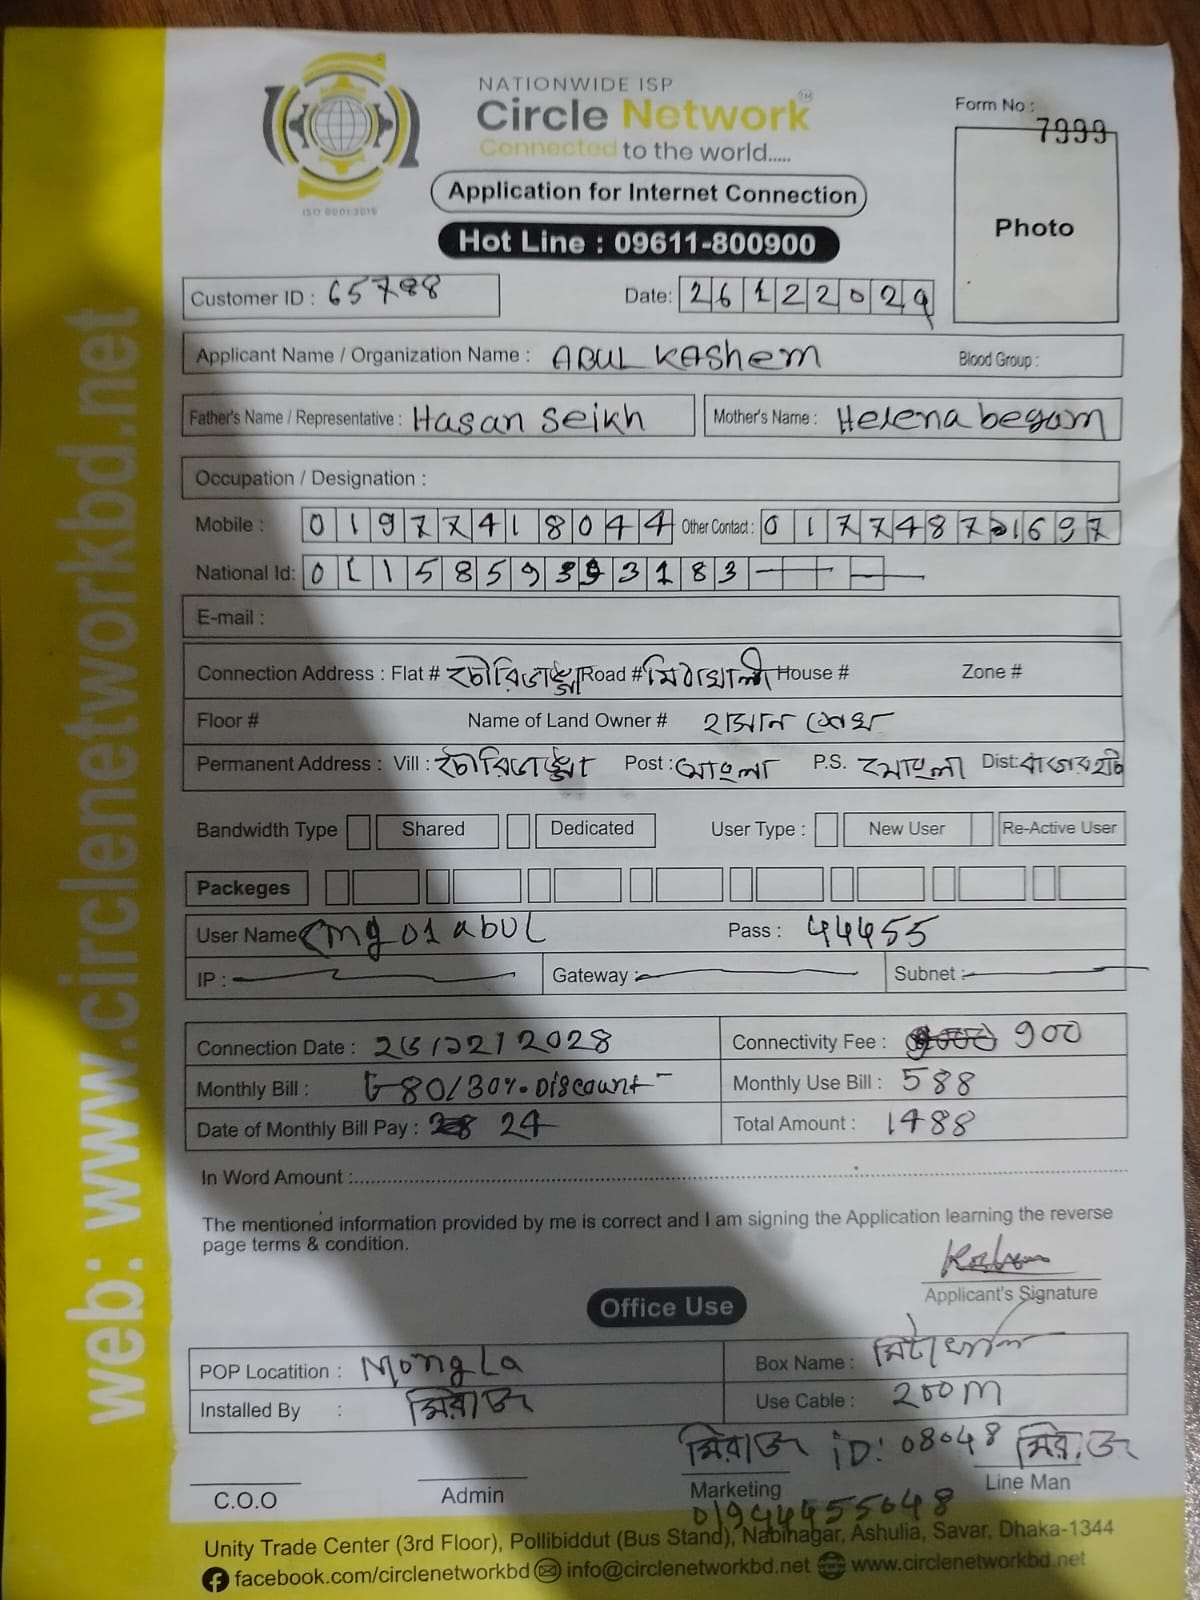 NATIONWIDE ISP
Circle Network™
Connected to the world.....
ISO 9001:2015
Form No : 7999
Application for Internet Connection
Hot Line : 09611-800900
Photo
Customer ID : 65788
Date: 26 12 202
Applicant Name / Organization Name : ABUL KAShem Blood Group :
Father's Name / Representative : Hasan Seikh Mother's Name : Helena begom
Occupation / Designation :
Mobile : 01977418044 Other Contact : 01774871697
National Id: 0115859 3183
E-mail :
Connection Address : Flat # Road # মিঠাখালী House # Zone #
Floor # Name of Land Owner # হাসান শেখ
Permanent Address : Vill : Post : মোংলা P.S. মোংলা Dist: বাগেরহাট
Bandwidth Type Shared Dedicated User Type : New User Re-Active User
Packeges
User Name mg01abul Pass : 44455
IP : Gateway : Subnet :
Connection Date : 2028 Connectivity Fee : 900
Monthly Bill : 80/30% Discount Monthly Use Bill : 588
Date of Monthly Bill Pay : 24 Total Amount : 1488
In Word Amount :
The mentioned information provided by me is correct and I am signing the Application learning the reverse
page terms & condition.
Applicant's Signature
Office Use
POP Locatition : Mongla Box Name :
Installed By : মিরাজ Use Cable : 200M
মিরাজ iD: 08048 মিরাজ
C.O.O Admin Marketing Line Man
01944455048
Unity Trade Center (3rd Floor), Pollibiddut (Bus Stand), Nabinagar, Ashulia, Savar, Dhaka-1344
facebook.com/circlenetworkbd info@circlenetworkbd.net www.circlenetworkbd.net
web: www.circlenetworkbd.net